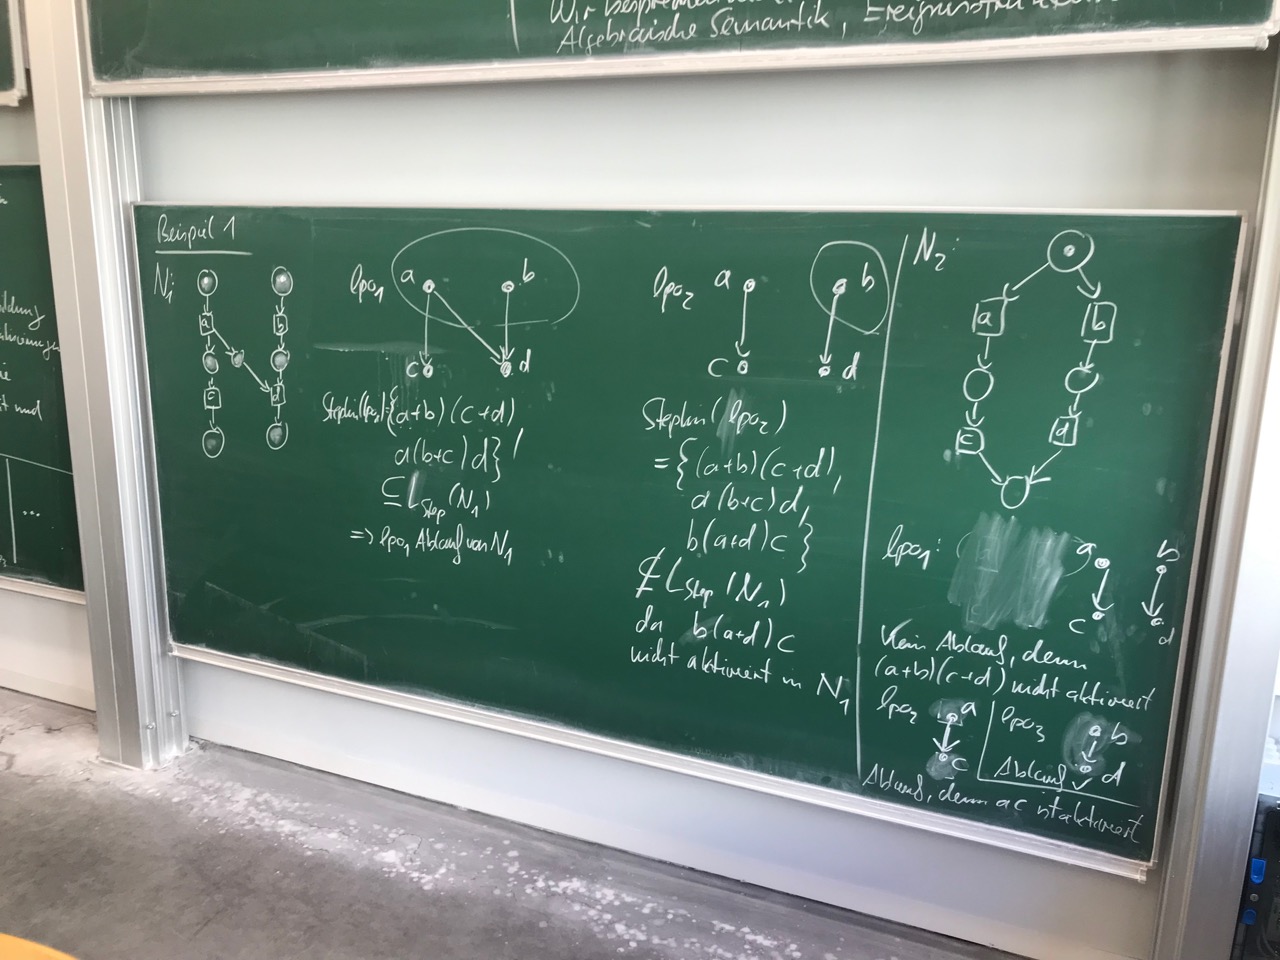 Algebraische Semantik,
Beispiel 1
N₁:
a
b
c
d
lpo₁
a
b
c
d
Steplin(lpo₁)={(a+b)(c+d),
a(b+c)d}
⊆ L_Step(N₁)
=> lpo₁ Ablauf von N₁
lpo₂
a
b
c
d
Steplin(lpo₂)
={(a+b)(c+d),
a(b+c)d,
b(a+d)c}
⊈ L_Step(N₁)
da b(a+d)c
nicht aktiviert in N₁
N₂:
a
b
c
d
lpo₁:
a
b
c
d
Kein Ablauf, denn
(a+b)(c+d) nicht aktiviert
lpo₂
a
c
Ablauf, denn ac ist aktiviert
lpo₃
b
d
Ablauf ✓
und
...